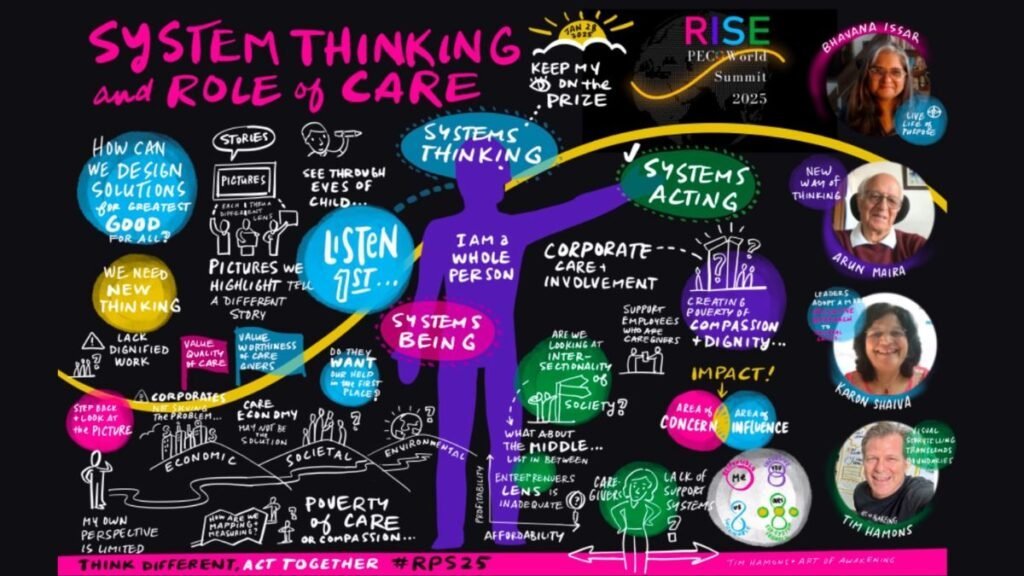 SYSTEM THINKING
and ROLE of CARE
JAN 28
2025
KEEP MY
ON the
PRIZE
RISE
PECO World
Summit
2025
BHAVANA ISSAR
LIVE
LIFE of
PURPOSE
HOW CAN
WE DESIGN
SOLUTIONS
for GREATEST
GOOD
FOR ALL?
STORIES
PICTURES
EACH THEM A
DIFFERENT LENS
PICTURES WE
HIGHLIGHT TELL
A DIFFERENT
STORY
SEE THROUGH
EYES OF
CHILD...
SYSTEMS
THINKING
SYSTEMS
ACTING
NEW
WAY of
THINKING
ARUN MAIRA
LISTEN
1ST...
I AM a
WHOLE
PERSON
CORPORATE
CARE +
INVOLVEMENT
CREATING
POVERTY OF
COMPASSION
+ DIGNITY...
WE NEED
NEW
THINKING
SYSTEMS
BEING
SUPPORT
EMPLOYEES
WHO ARE
CAREGIVERS
LEADERS
ADOPT A
TO
KARON SHAIVA
LACK
DIGNIFIED
WORK
VALUE
QUALITY
of CARE
VALUE
WORTHINESS
OF CARE
GIVERS
DO THEY
WANT
OUR HELP
in the FIRST
PLACE?
ARE WE
LOOKING AT
INTER-
SECTIONALITY
OF
SOCIETY?
IMPACT!
AREA of
CONCERN
AREA of
INFLUENCE
STEP BACK
+ LOOK at
the PICTURE
CORPORATES
NOT SOLVING
THE PROBLEM...
CARE
ECONOMY
MAY NOT BE
THE SOLUTION
ECONOMIC
SOCIETAL
ENVIRONMENTAL
WHAT ABOUT
THE MIDDLE...
LOST IN BETWEEN
ENTREPRENUERS
LENS IS
INADEQUATE
PROFITABILITY
AFFORDABILITY
CARE-
GIVERS
LACK OF
SUPPORT
SYSTEMS
ME
YOU
US
VISUAL
STORYTELLING
TRANSCENDS
BOUNDARIES
TIM HAMONS
MY OWN
PERSPECTIVE
IS LIMITED
HOW ARE WE
MAPPING +
MEASURING?
POVERTY
of CARE
OR COMPASSION...
THINK DIFFERENT, ACT TOGETHER #RPS25
TIM HAMONS • ART OF AWAKENING